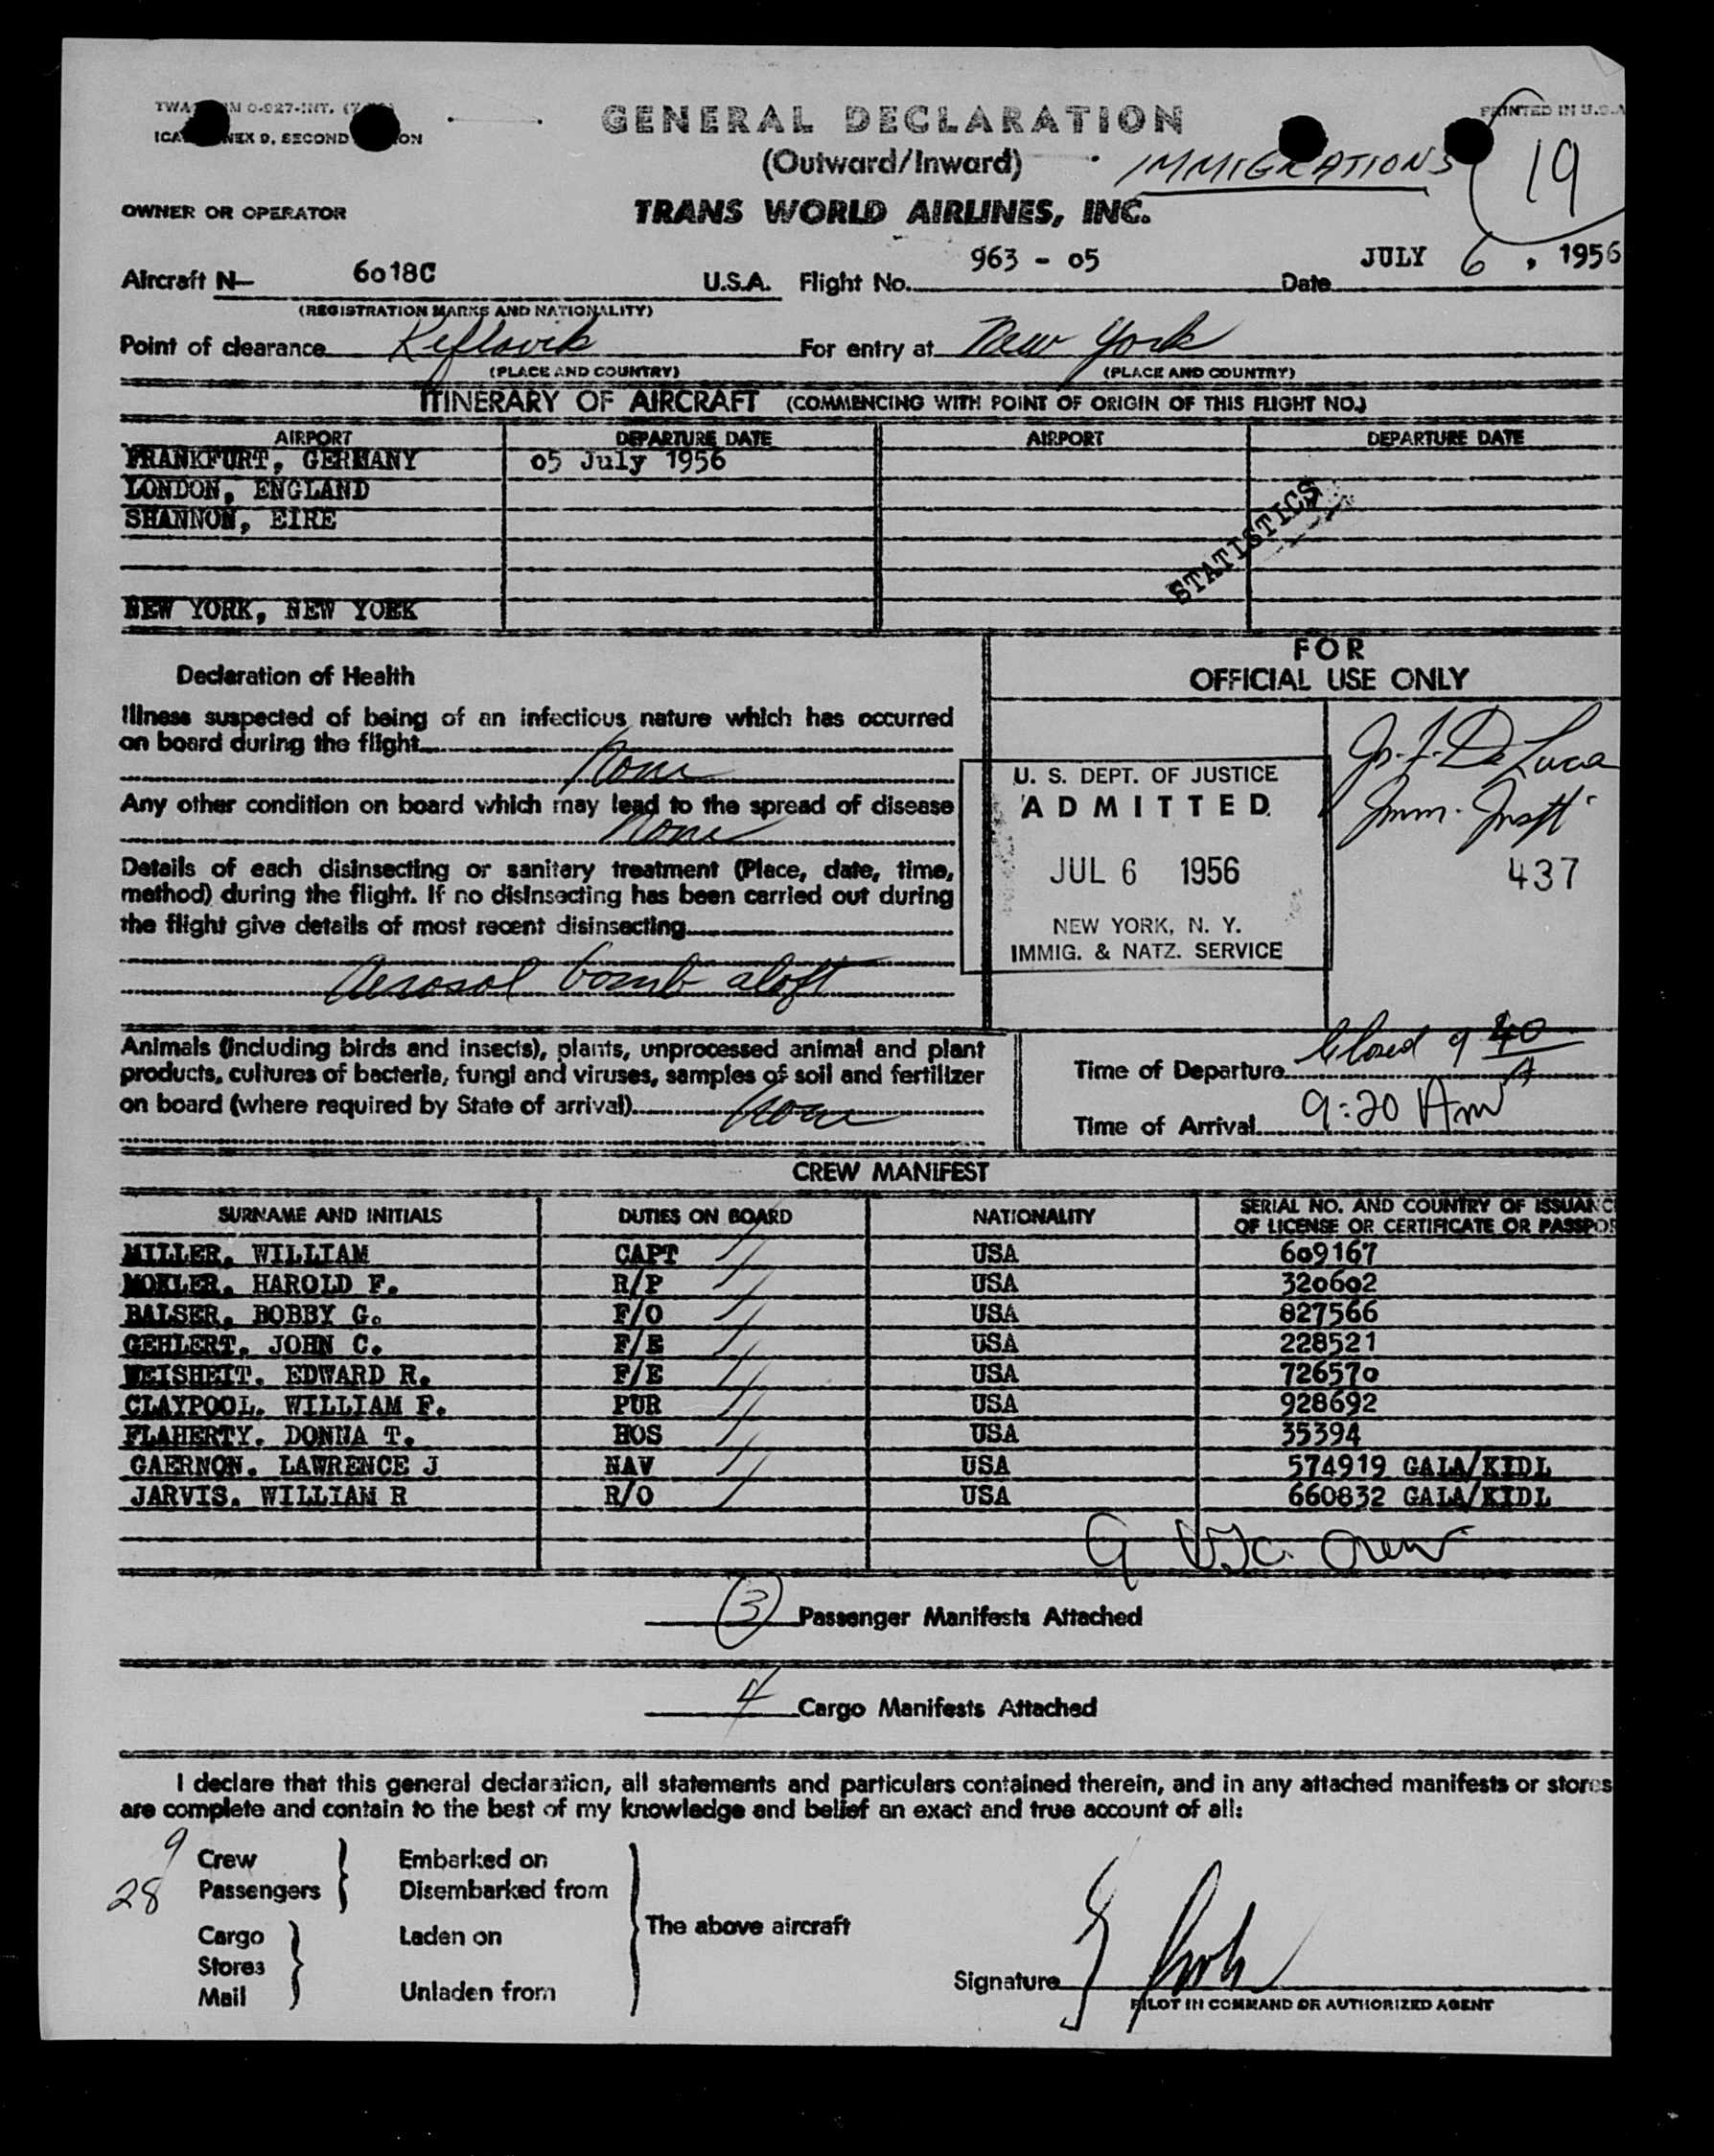 TWA FORM O-927-INT.
PRINTED IN U.S.A
ICAO ANNEX 9, SECOND EDITION
GENERAL DECLARATION
(Outward/Inward)
IMMIGRATIONS
19
OWNER OR OPERATOR
TRANS WORLD AIRLINES, INC.
Aircraft N— 6018C U.S.A. Flight No. 963 - 05 Date JULY 6, 1956
(REGISTRATION MARKS AND NATIONALITY)
Point of clearance Keflavik For entry at New York
(PLACE AND COUNTRY) (PLACE AND COUNTRY)
ITINERARY OF AIRCRAFT (COMMENCING WITH POINT OF ORIGIN OF THIS FLIGHT NO.)
AIRPORT DEPARTURE DATE AIRPORT DEPARTURE DATE
FRANKFURT, GERMANY 05 July 1956
LONDON, ENGLAND
SHANNON, EIRE
STATISTICS
NEW YORK, NEW YORK
FOR
OFFICIAL USE ONLY
Declaration of Health
Illness suspected of being of an infectious nature which has occurred
on board during the flight
None
Any other condition on board which may lead to the spread of disease
None
Details of each disinsecting or sanitary treatment (Place, date, time,
method) during the flight. If no disinsecting has been carried out during
the flight give details of most recent disinsecting
Aerosol bomb aloft
U. S. DEPT. OF JUSTICE
ADMITTED
JUL 6 1956
NEW YORK, N. Y.
IMMIG. & NATZ. SERVICE
De Luca
Imm. Inspt
437
Animals (including birds and insects), plants, unprocessed animal and plant
products, cultures of bacteria, fungi and viruses, samples of soil and fertilizer
on board (where required by State of arrival) None
Time of Departure Closed 9 40 A
Time of Arrival 9:20 Am
CREW MANIFEST
SURNAME AND INITIALS DUTIES ON BOARD NATIONALITY SERIAL NO. AND COUNTRY OF ISSUANC
OF LICENSE OR CERTIFICATE OR PASSPOR
MILLER, WILLIAM CAPT USA 609167
MOKLER, HAROLD F. R/P USA 320602
BALSER, BOBBY G. F/O USA 827566
GEHLERT, JOHN C. F/E USA 228521
WEISHEIT, EDWARD R. F/E USA 726570
CLAYPOOL, WILLIAM F. PUR USA 928692
FLAHERTY, DONNA T. HOS USA 35394
GAERNON, LAWRENCE J NAV USA 574919 GALA/KIDL
JARVIS, WILLIAM R R/O USA 660832 GALA/KIDL
9 Crew
3 Passenger Manifests Attached
4 Cargo Manifests Attached
I declare that this general declaration, all statements and particulars contained therein, and in any attached manifests or stores
are complete and contain to the best of my knowledge and belief an exact and true account of all:
9 Crew Embarked on
28 Passengers Disembarked from
The above aircraft
Cargo Laden on
Stores
Mail Unladen from
Signature
PILOT IN COMMAND OR AUTHORIZED AGENT